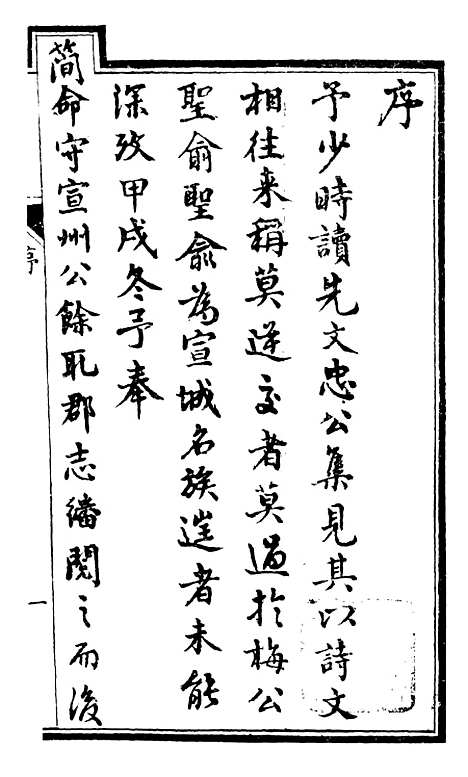 序
予少時讀先文忠公集見其以詩文
相往来稱莫逆交者莫過於梅公
聖俞聖俞為宣城名族遥者未能
深攷甲戌冬予奉
簡命守宣州公餘取郡志繙閱之而後
序
一